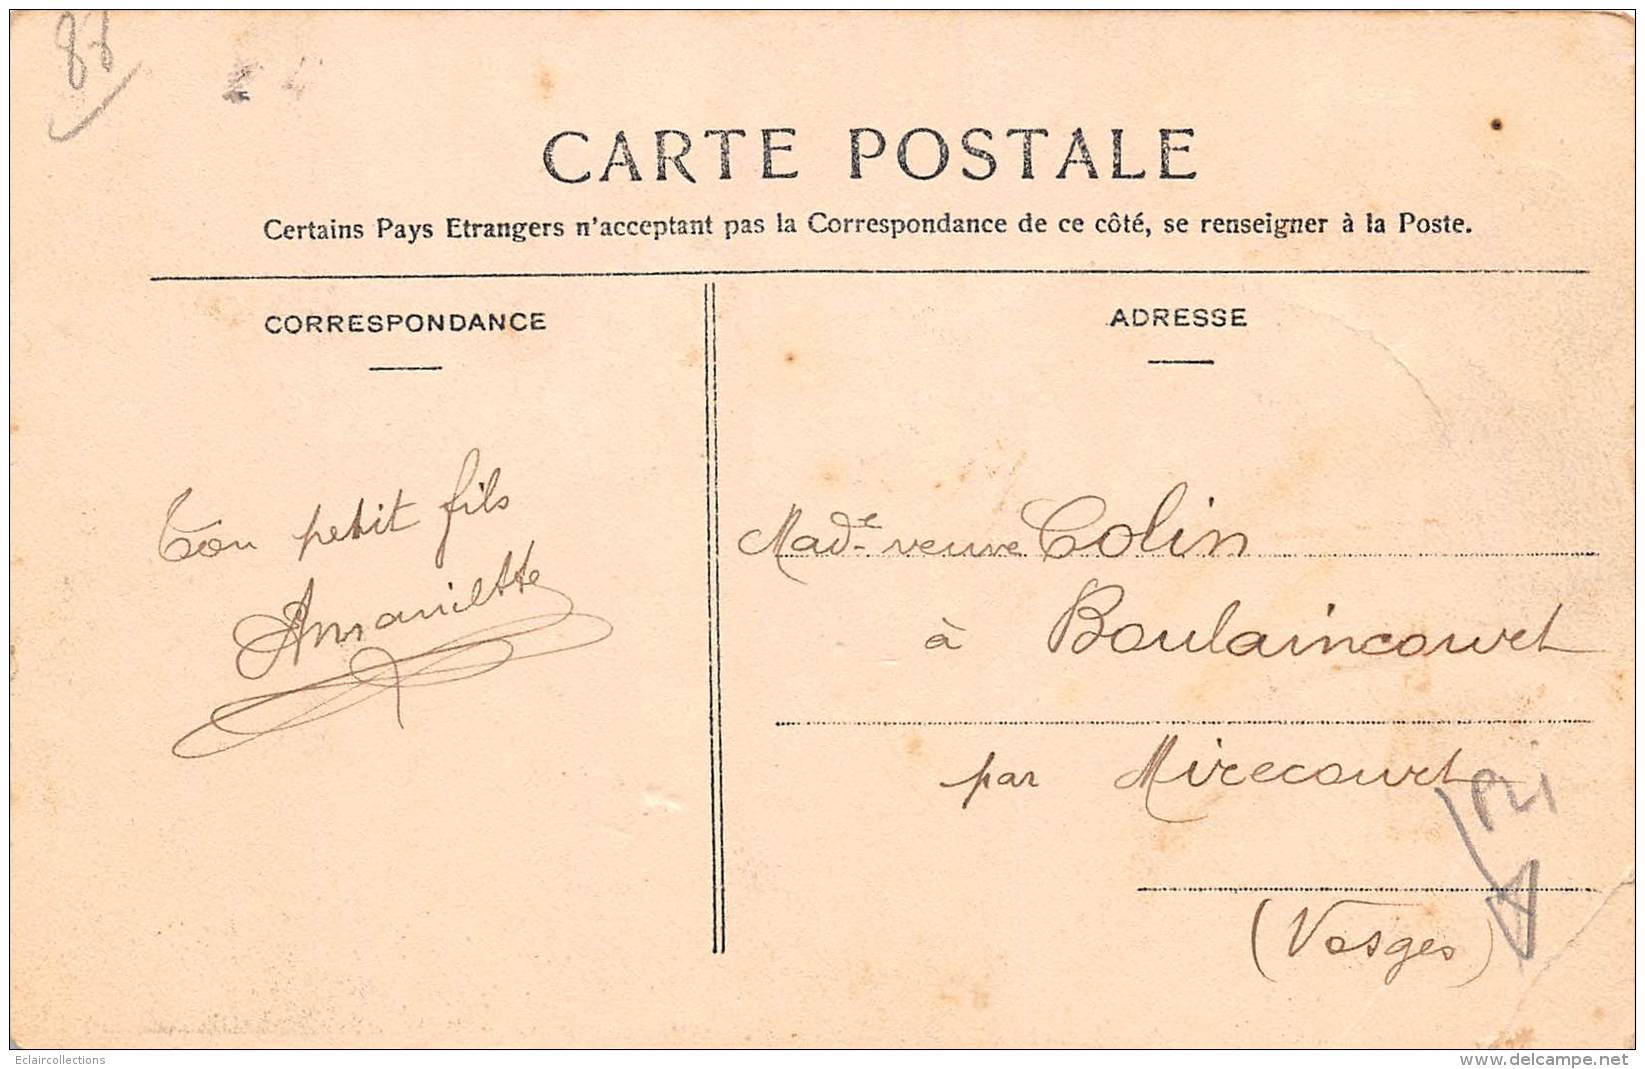 88
CARTE POSTALE
Certains Pays Etrangers n'acceptant pas la Correspondance de ce côté, se renseigner à la Poste.
CORRESPONDANCE
Ton petit fils
ADRESSE
Made veuve Colin
à Boulaincourt
par Mirecourt
(Vosges)
Eclaircollections
www.delcampe.net